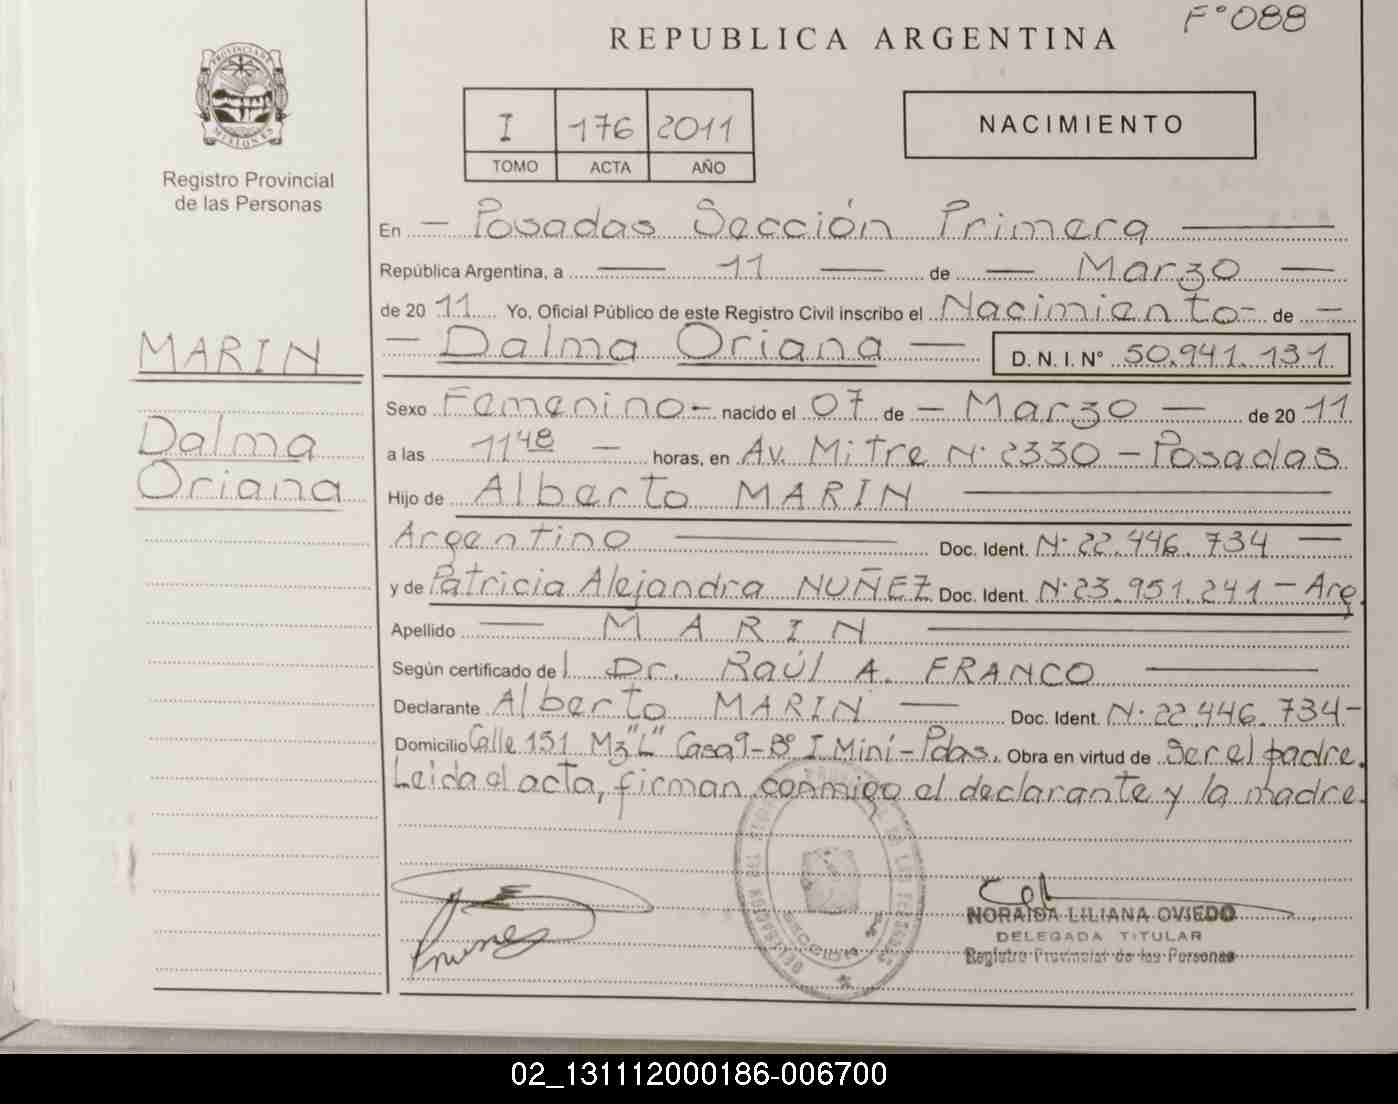 F° 088
REPUBLICA ARGENTINA
PROVINCIA DE MISIONES
Registro Provincial
de las Personas
I 176 2011
TOMO ACTA AÑO
NACIMIENTO
En - Posadas Sección Primera
República Argentina, a 11 de - Marzo
de 2011 Yo, Oficial Público de este Registro Civil inscribo el Nacimiento- de -
- Dalma Oriana - D. N. I. N° 50.941.131
MARIN
Dalma
Oriana
Sexo Femenino- nacido el 07 de - Marzo - de 2011
a las 11 48 - horas, en Av. Mitre N° 2330 - Posadas
Hijo de Alberto MARIN
Argentino Doc. Ident. N° 22.446.734 -
y de Patricia Alejandra NUÑEZ Doc. Ident. N° 23.951.241 - Arg.
Apellido - MARIN
Según certificado de l Dr. Raúl A. FRANCO
Declarante Alberto MARIN - Doc. Ident. N° 22.446.734-
Domicilio Calle 151 Mz "L" Casa 9 - B° I Miní - Pdas. Obra en virtud de ser el padre.
Leida el acta, firman conmigo el declarante y la madre.
NORAIDA LILIANA OVIEDO
DELEGADA TITULAR
Registro Provincial de las Personas
02_131112000186-006700